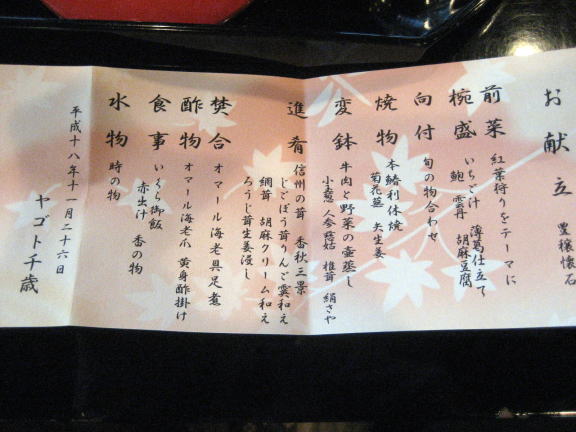 お献立 豊穣懐石
前菜 紅葉狩りをテーマに
椀盛 いちご汁 薄葛仕立て
鮑 雲丹 胡麻豆腐
向付 旬の物合わせ
焼物 本鰆利休焼
菊花蕪 矢生姜
変鉢 牛肉と野菜の壷蒸し
小玉葱 人参 椎茸 絹さや
進肴 信州の茸 香秋三景
じごぼう茸りんご霙和え
網茸 胡麻クリーム和え
ろうじ茸生姜浸し
焚合 オマール海老具足煮
酢物 オマール海老爪 黄身酢掛け
食事 いくら御飯
赤出汁 香の物
水物 時の物
平成十八年十一月二十六日
ヤゴト千歳